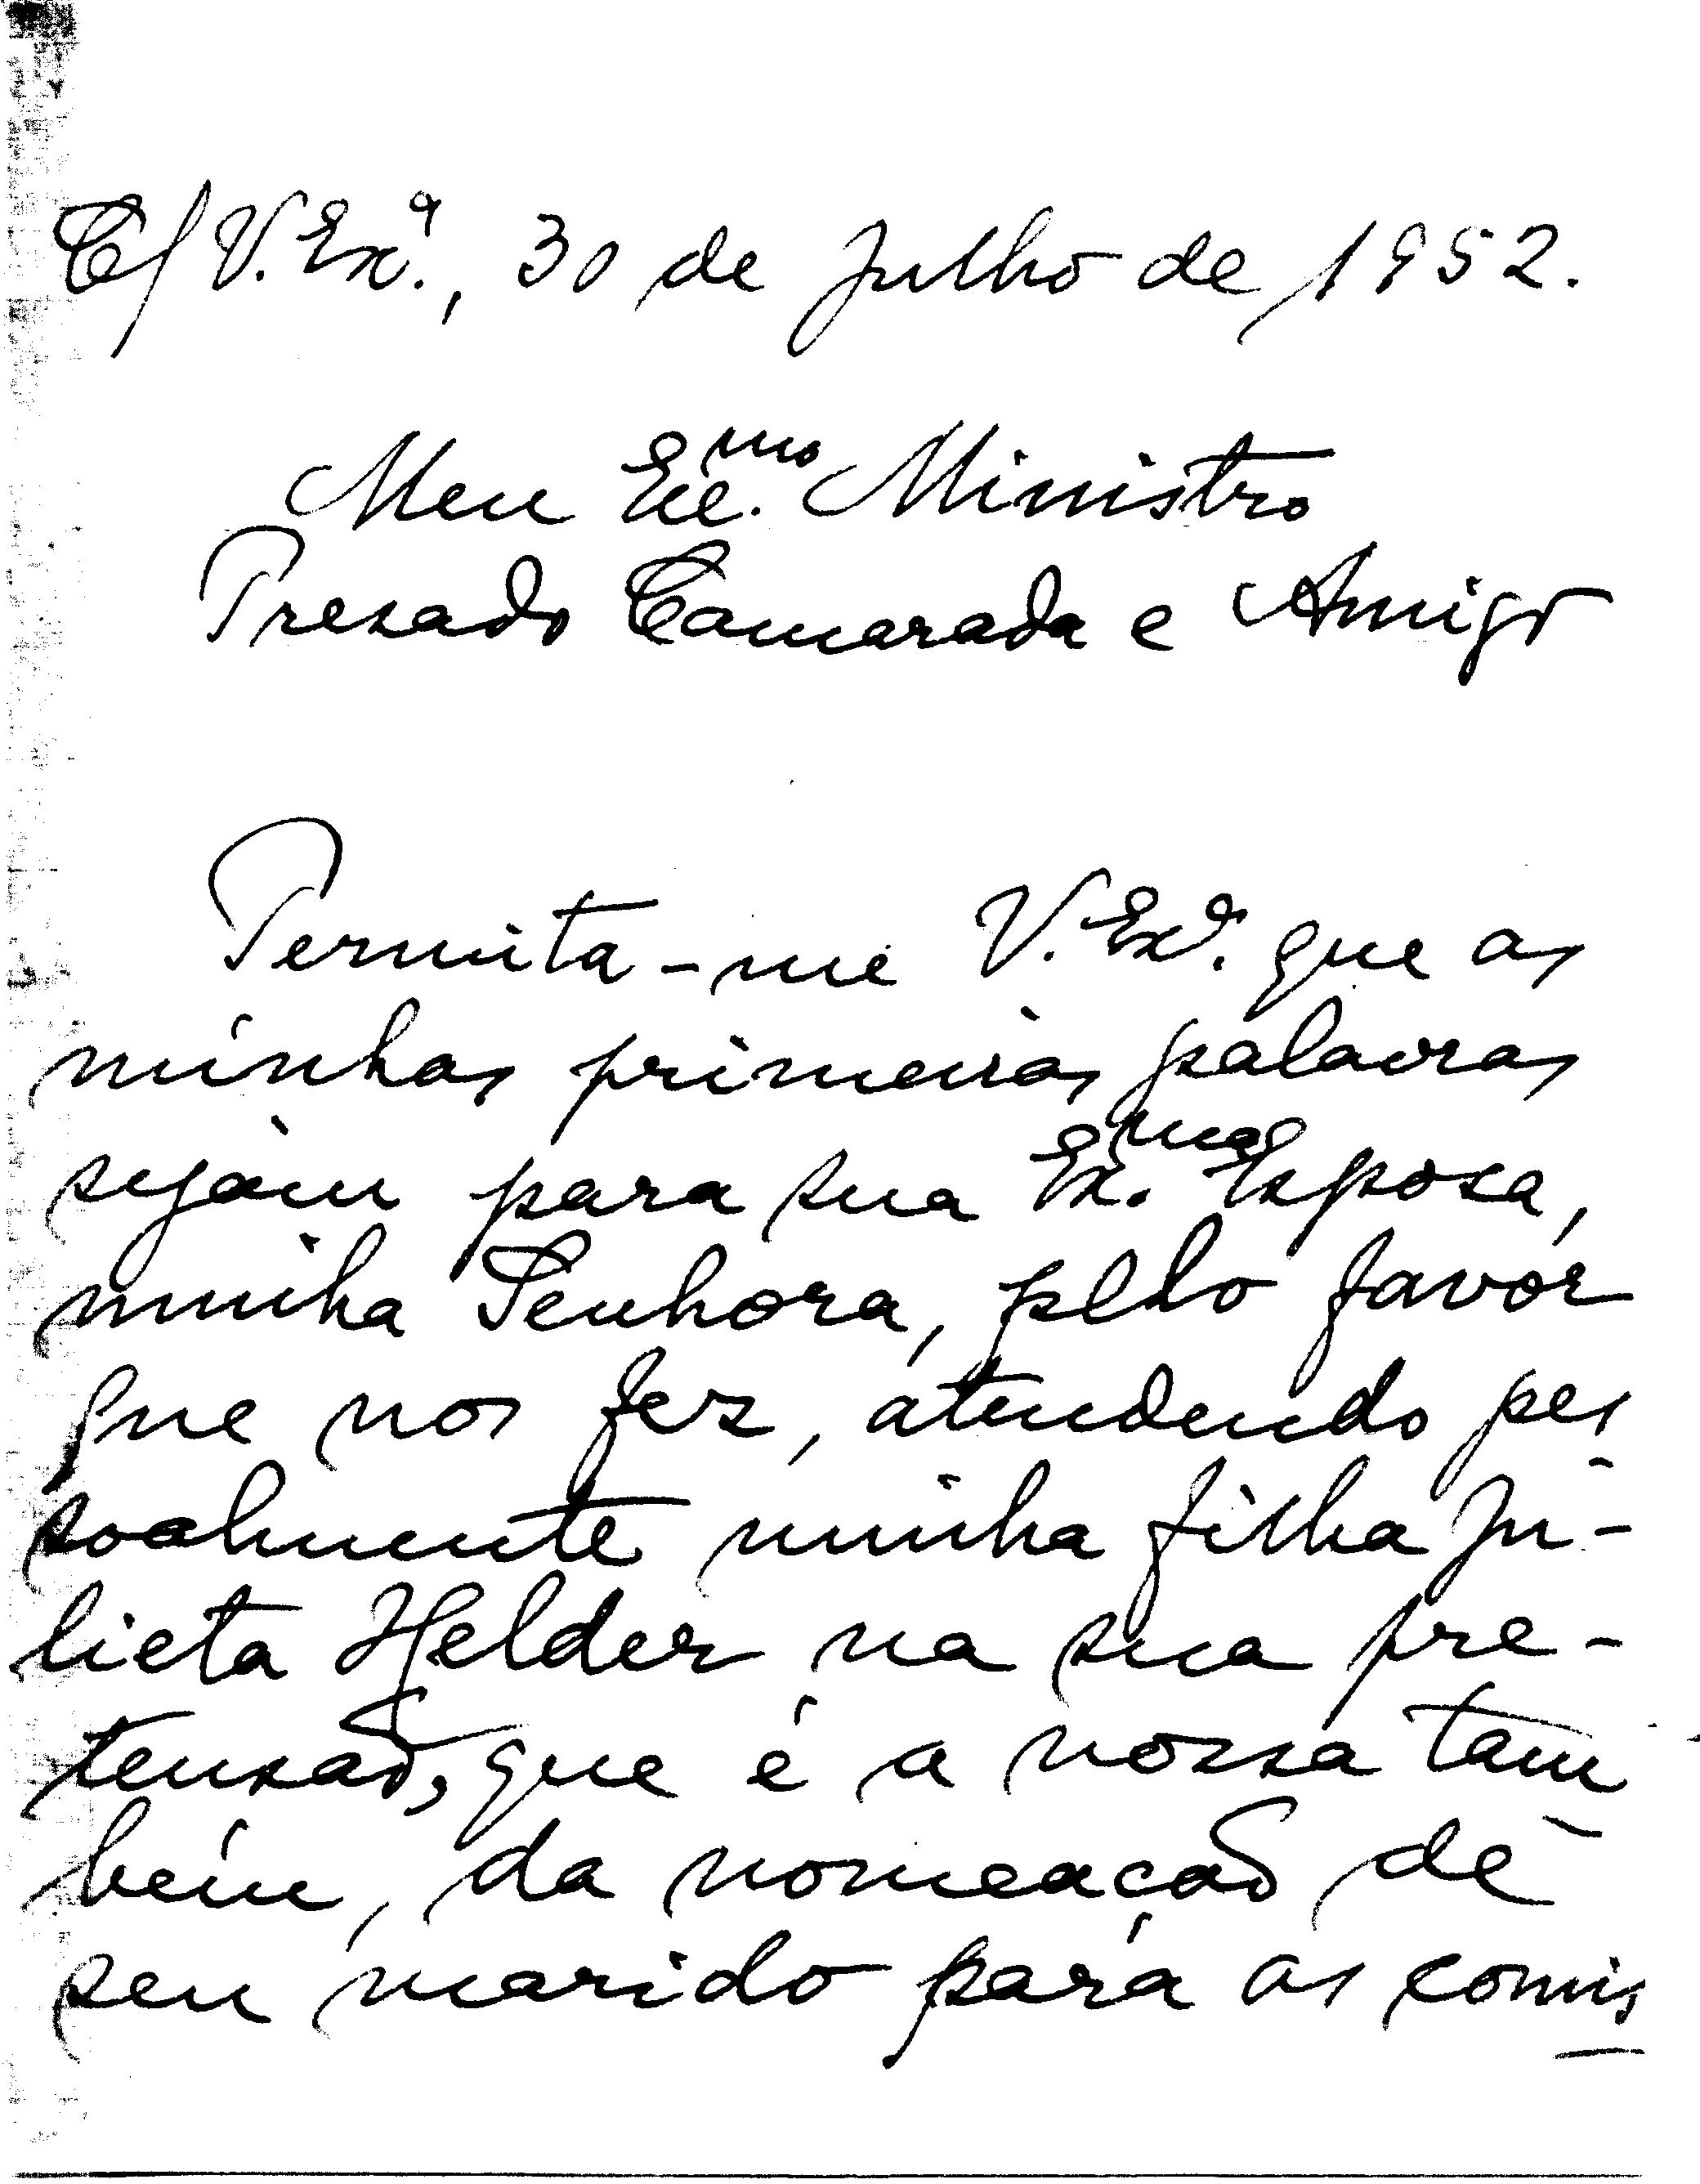 C/ V. Exª., 30 de Julho de 1952.
Meu Exc.mo Ministro
Presado Camarada e Amigo
Permita-me V. Exª. que as
minhas primeiras palavras
sejam para sua Ex.ma Esposa,
minha Senhora, pelo favor
que nos fez, atendendo pes
soalmente minha filha Ju-
lieta Helder na sua pre-
tensão, que é a nossa tam
bém, da nomeação de
seu marido para as comis